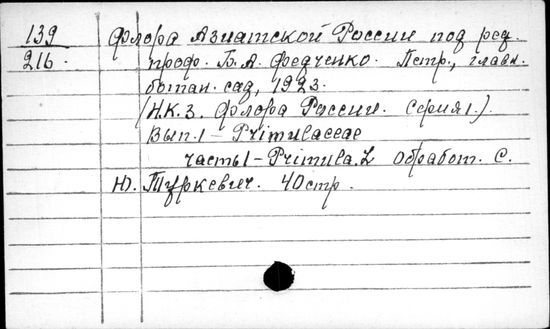 139 Флора Азиатской России под ред.
216. проф. Б. А. Федченко. Петр., главн.
ботан. сад, 1923.
(Н.К.З. Флора России. Серия 1.)
Вып. 1 – Primulaceae
часть 1 – Primula. L обработ. С.
Ю. Туркевич. 40 стр.